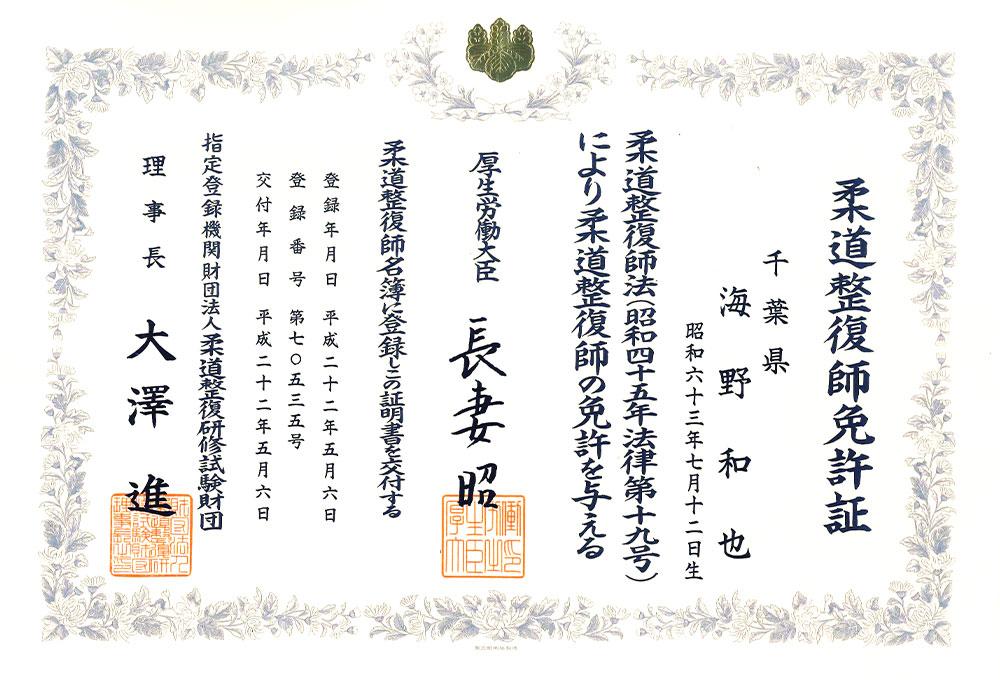 柔道整復師免許証
千葉県
海野和也
昭和六十三年七月十二日生
柔道整復師法(昭和四十五年法律第十九号)
により柔道整復師の免許を与える
厚生労働大臣 長妻昭
柔道整復師名簿に登録しこの証明書を交付する
登録年月日 平成二十二年五月六日
登録番号 第七〇五三五号
交付年月日 平成二十二年五月六日
指定登録機関財団法人柔道整復研修試験財団
理事長 大澤進